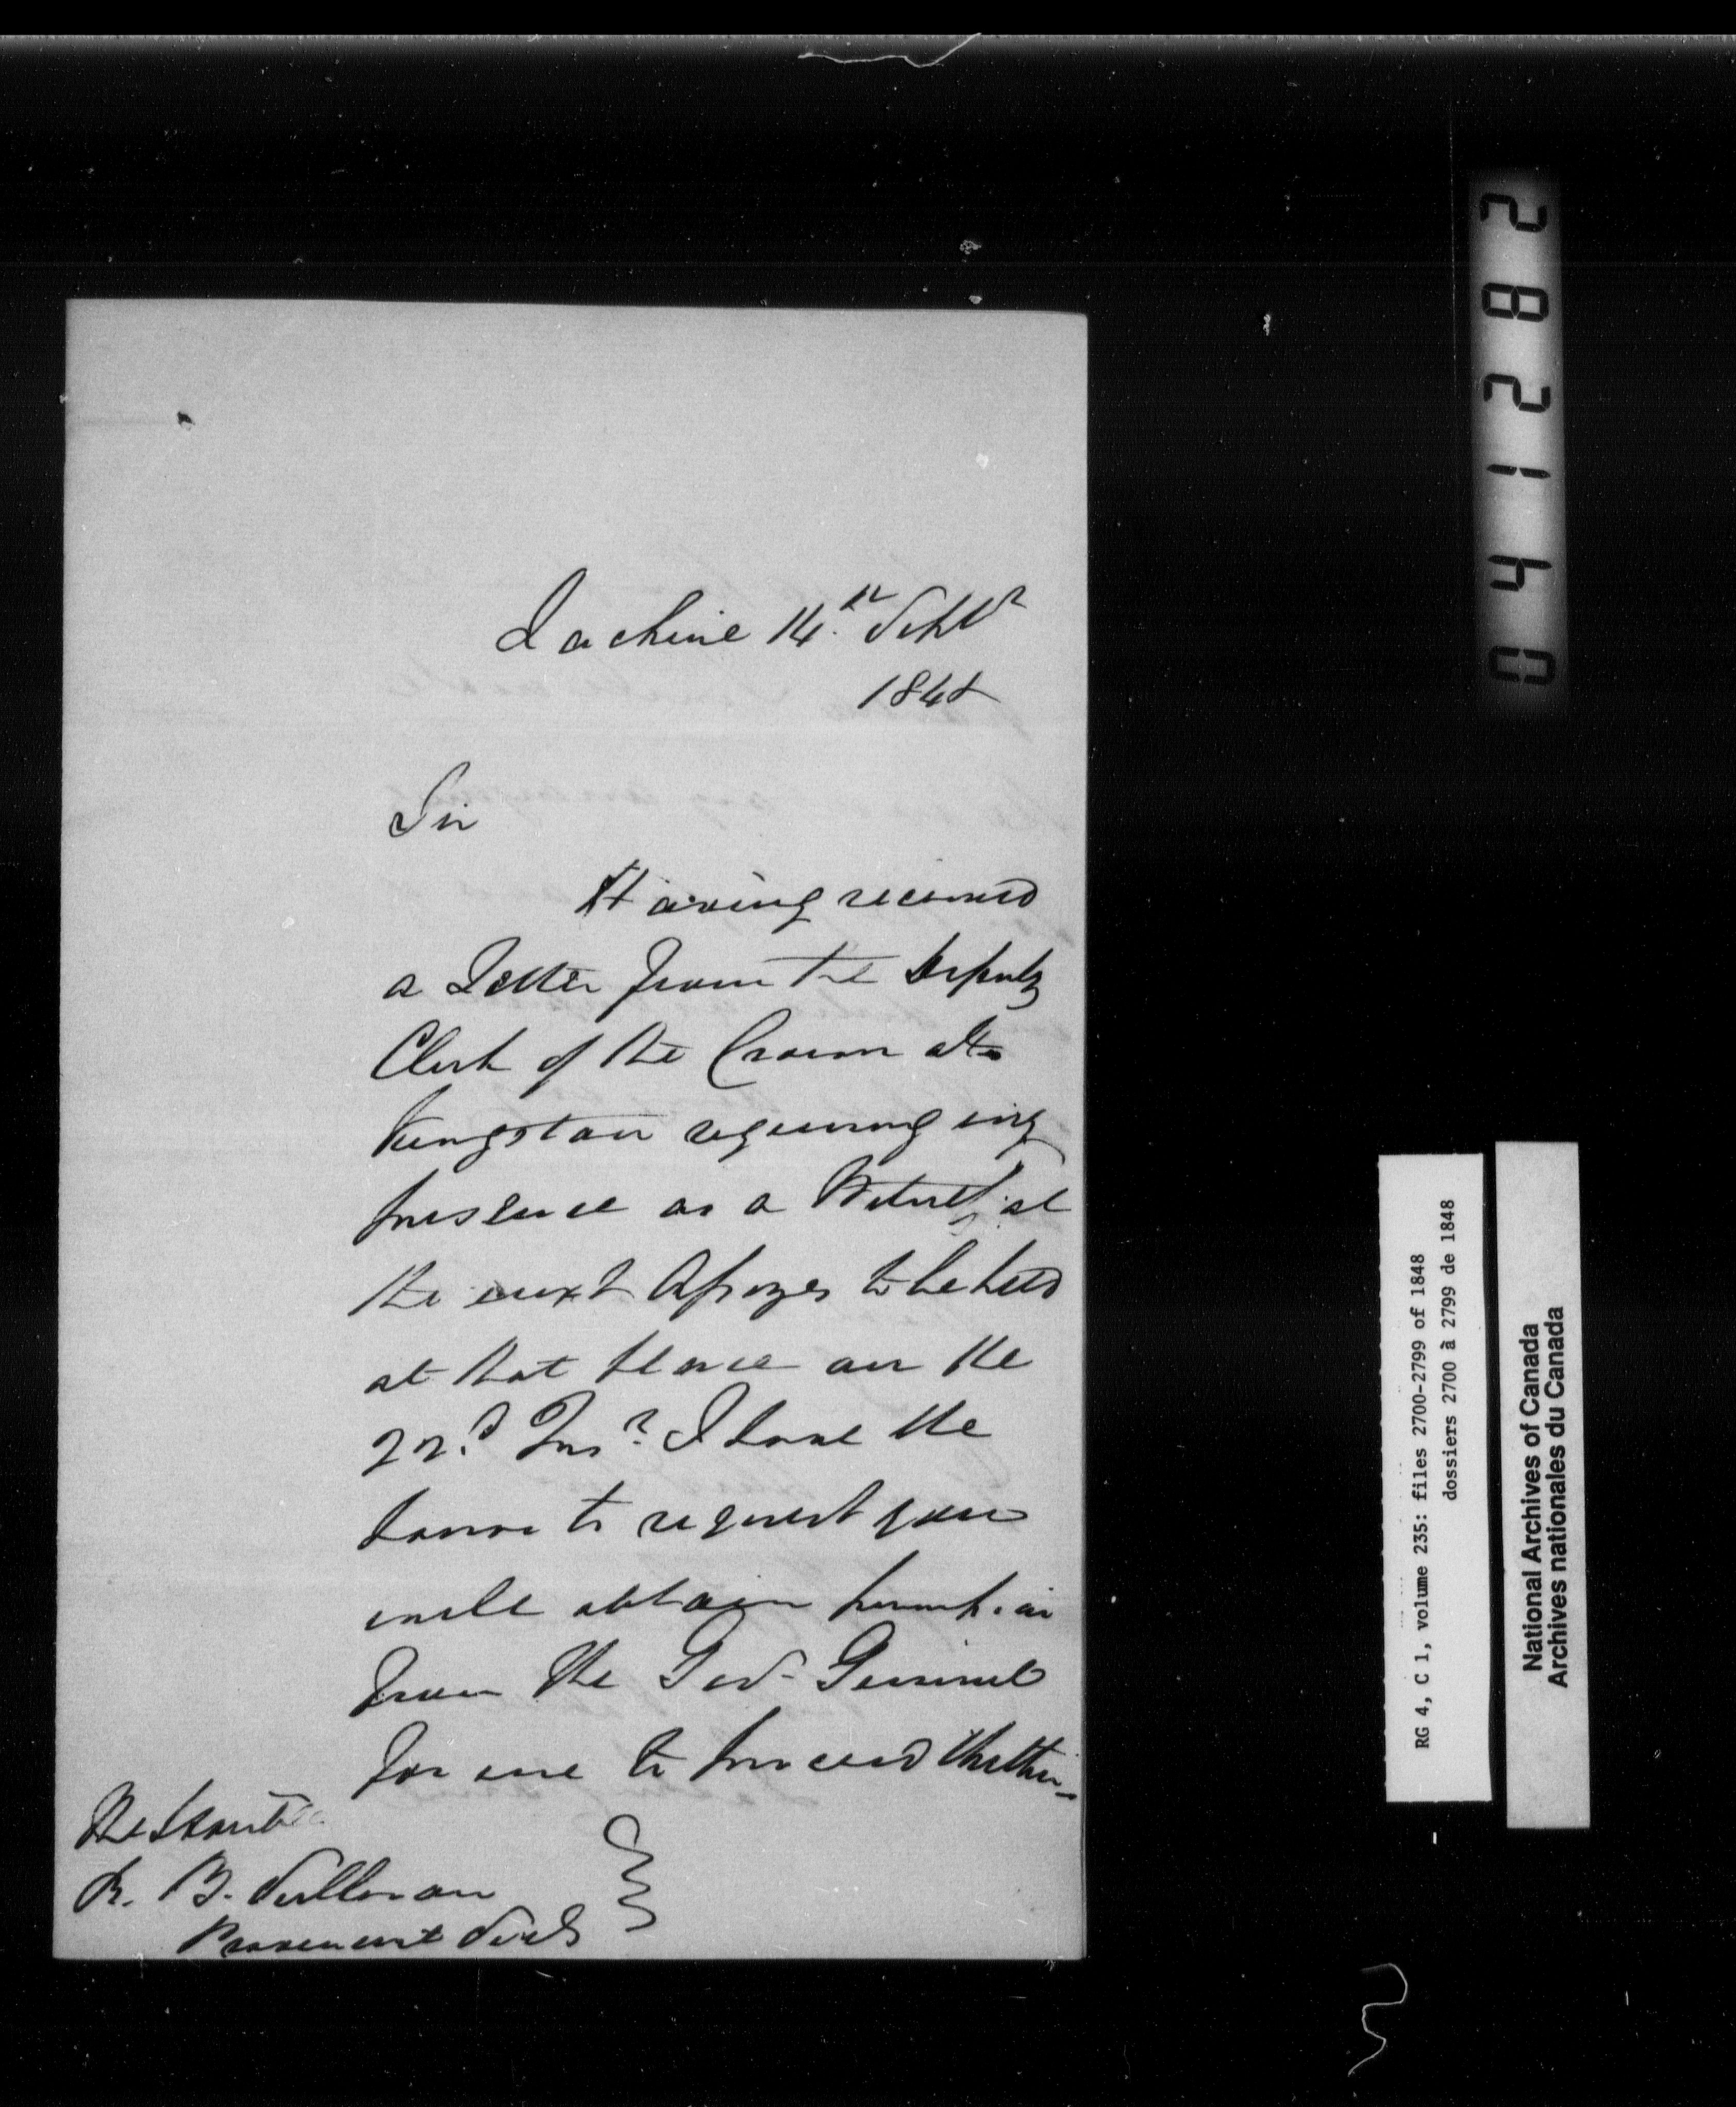 Lachine 14th Septr
1848
Sir
Having received
a Letter from the Deputy
Clerk of the Crown at
Kingston requiring my
presence as a Witness at
the next Assizes to be held
at that place on the
22d Inst I have the
honor to request you
will obtain permission
from the Gov General
for me to proceed thither
The Honble
R. B. Sullivan
Provincial Secy
042182
RG 4, C 1, volume 235: files 2700-2799 of 1848
dossiers 2700 à 2799 de 1848
National Archives of Canada
Archives nationales du Canada